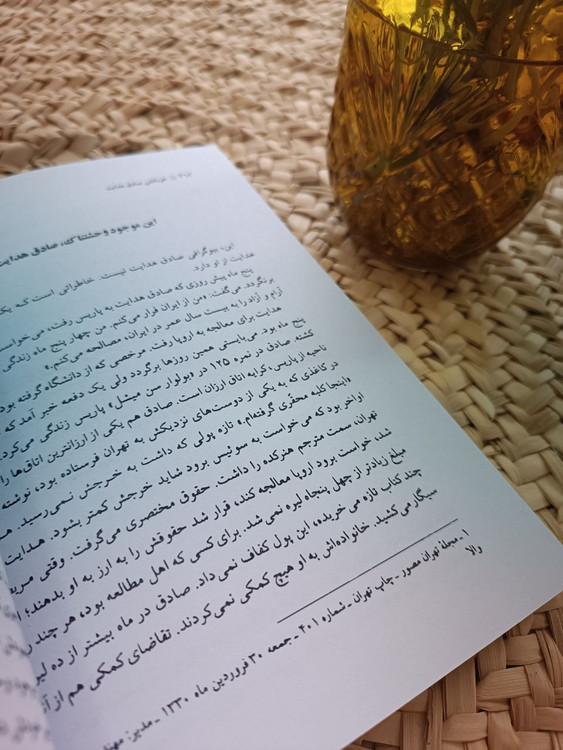 این موجود وحشتناک، صادق هدایت
این، بیوگرافی صادق هدایت نیست. خاطراتی است که یک
هدایت از او دارد.
پنج ماه پیش روزی که صادق هدایت به پاریس رفت، می‌خواست
برنگردد. می‌گفت: «من از ایران فرار می‌کنم. من چهار پنج ماه زندگی
آرام و آزاد را به بیست سال عمر در ایران، مصالحه می‌کنم.»
هدایت برای معالجه به اروپا رفت. مرخصی که از دانشگاه گرفته بود
پنج ماه بود. می‌بایستی همین روزها برگردد ولی یک دفعه خبر آمد که
کشته. صادق در نمره ۱۲۵ در «بولوار سن میشل» پاریس زندگی می‌کرد.
ناحیه از پاریس، کرایه اتاق ارزان است. صادق هم یکی از ارزانترین اتاق‌ها را
در کاغذی که به یکی از دوست‌های نزدیکش به تهران فرستاده بود، نوشته
«اینجا کلبه محقّری گرفته‌ام.» تازه پولی که داشت به خرجش نمی‌رسید.
اواخر بود که می خواست به سوئیس برود شاید خرجش کمتر بشود. هدایت
تهران، سمت مترجم هنرکده را داشت. حقوق مختصری می‌گرفت. وقتی
شد، خواست برود اروپا معالجه کند، قرار شد حقوقش را به ارز به او بدهند؛
مبلغ زیادتر از چهل پنجاه لیره نمی‌شد. برای کسی که اهل مطالعه بود، هر چند
چند کتاب تازه می خریده، این پول کفاف نمی‌داد. صادق در ماه بیشتر از ده
سیگار می‌کشید. خانواده‌اش به او هیچ کمکی نمی‌کردند. تقاضای کمکی هم از
۱ ـ مجلهٔ تهران مصور ـ چاپ تهران ـ شماره ۴۰۱ ـ جمعه ۳۰ فروردین ماه ۱۳۳۰ ـ مدیر:
والا